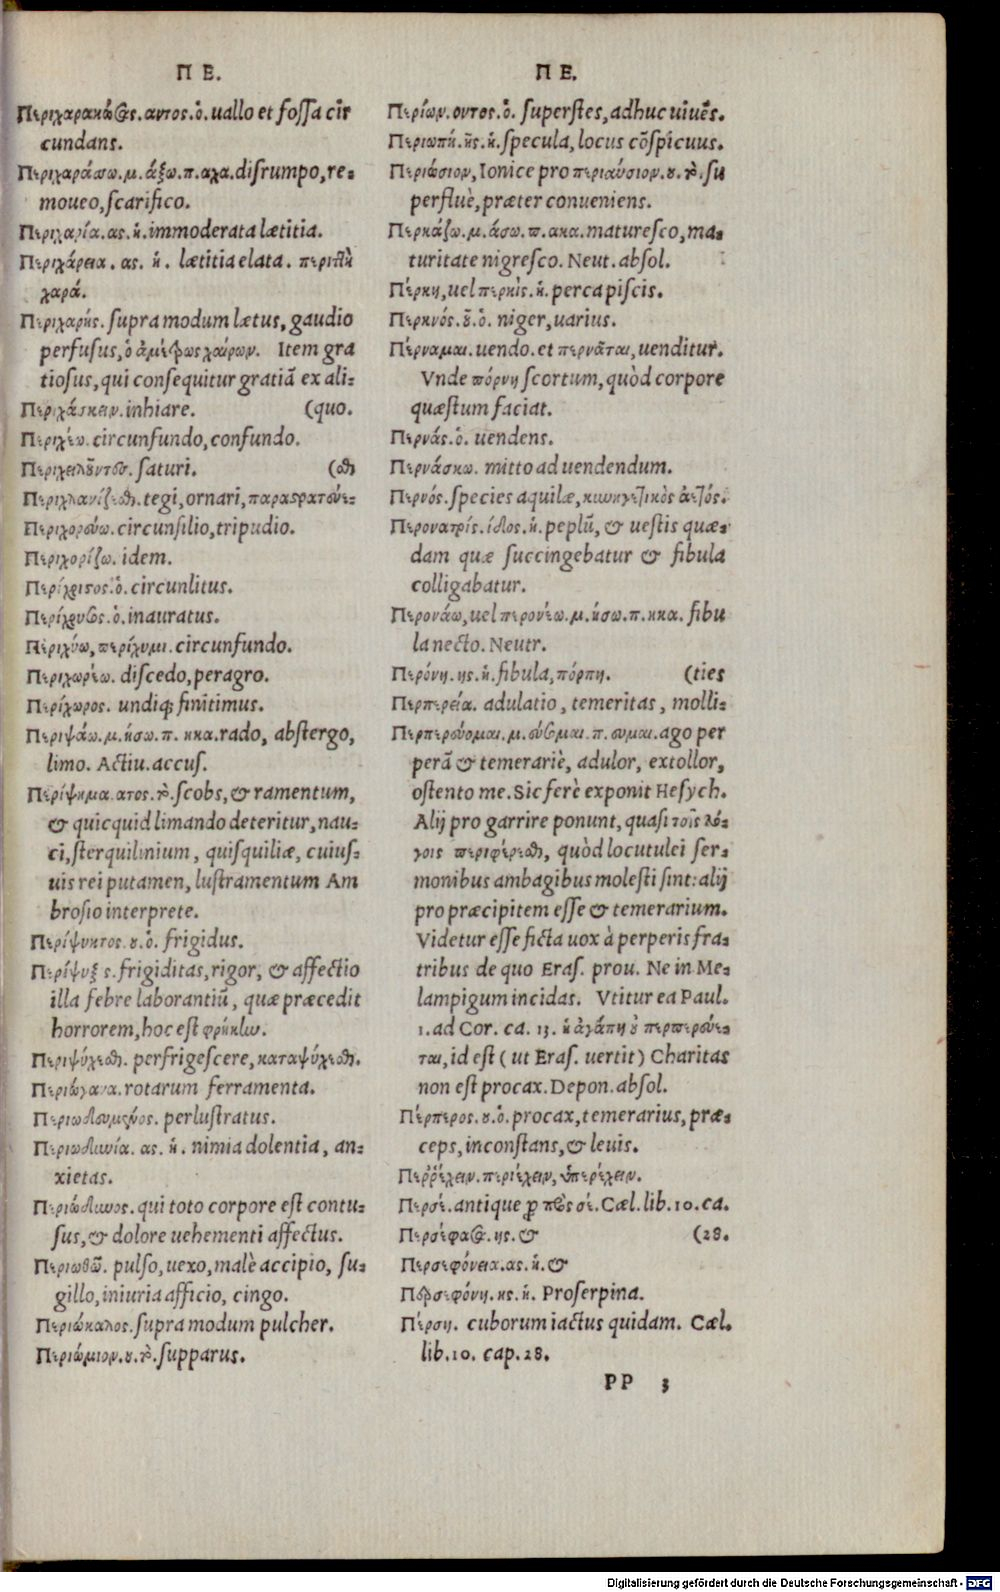 Π Ε.
Περιχαρακώσας. αντος. ὁ. uallo et foſſa cir
cundans.
Περιχαράσσω. μ. άξω. π. αχα. diſrumpo, re-
moueo, ſcarifico.
Περιχαρία. ας. ἡ. immoderata lætitia.
Περιχάρεια. ας. ἡ. lætitia elata. περιττὴ
χαρά.
Περιχαρής. ſupra modum lætus, gaudio
perfuſus, ὁ ἀμέτρως χαίρων. Item gra
tioſus, qui conſequitur gratiā ex ali-
Περιχάσκειν. inhiare. (quo.
Περιχέω. circunfundo, confundo.
Περιχειλοῦντες. ſaturi. (σθαι
Περιχλανίζεσθαι. tegi, ornari, παραστρατεύε-
Περιχορεύω. circunſilio, tripudio.
Περιχορίζω. idem.
Περίχριστος. ὁ. circunlitus.
Περίχρυσος. ὁ. inauratus.
Περιχύω, περίχυμι. circunfundo.
Περιχωρέω. diſcedo, peragro.
Περίχωρος. undiq; finitimus.
Περιψάω. μ. ήσω. π. ηκα. rado, abſtergo,
limo. Actiu. accuſ.
Περίψημα. ατος. τὸ. ſcobs, & ramentum,
& quicquid limando deteritur, nau-
ci, ſterquilinium, quiſquiliæ, cuiuſ-
uis rei putamen, luſtramentum Am
broſio interprete.
Περίψυκτος. ου. ὁ. frigidus.
Περίψυξις. frigiditas, rigor, & affectio
illa febre laborantiū, quæ præcedit
horrorem, hoc eſt φρίκην.
Περιψύχεσθαι. perfrigeſcere, καταψύχεσθαι.
Περιώγανα. rotarum ferramenta.
Περιωδευμένος. perluſtratus.
Περιωδυνία. ας. ἡ. nimia dolentia, an-
xietas.
Περιώδυνος. qui toto corpore eſt contu-
ſus, & dolore uehementi affectus.
Περιωθῶ. pulſo, uexo, malè accipio, ſu-
gillo, iniuria afficio, cingo.
Περιώκαλος. ſupra modum pulcher.
Περιώμιον. ου. τὸ. ſupparus.
Π Ε.
Περίων. οντος. ὁ. ſuperſtes, adhuc uiuēs.
Περιωπή. ῆς. ἡ. ſpecula, locus cōſpicuus.
Περιώσιον, Ionice pro περιαύσιον. ου. τὸ. ſu
perfluè, præter conueniens.
Περκάζω. μ. άσω. π. ακα. matureſco, ma-
turitate nigreſco. Neut. abſol.
Πέρκη, uel περκὶς. ἡ. perca piſcis.
Περκνός. οῦ. ὁ. niger, uarius.
Πέρναμαι. uendo. et περνᾶται, uenditur.
Vnde πόρνη ſcortum, quòd corpore
quæſtum faciat.
Περνάς. ὁ. uendens.
Περνάσκω. mitto ad uendendum.
Περνός. ſpecies aquilæ, κυνηγετικὸς ἀετός.
Περονατρίς. ίδος. ἡ. peplū, & ueſtis quæ-
dam quæ ſuccingebatur & fibula
colligabatur.
Περονάω, uel περονέω. μ. ήσω. π. ηκα. fibu
la necto. Neutr.
Περόνη. ης. ἡ. fibula, πόρπη. (ties
Περπερεία. adulatio, temeritas, molli-
Περπερεύομαι. μ. εύσομαι. π. ευμαι. ago per
perā & temerariè, adulor, extollor,
oſtento me. Sic ferè exponit Heſych.
Alij pro garrire ponunt, quaſi τοῖς λό-
γοις περιφέρεσθαι, quòd locutulei ſer-
monibus ambagibus moleſti ſint: alij
pro præcipitem eſſe & temerarium.
Videtur eſſe ficta uox à perperis fra-
tribus de quo Eraſ. prou. Ne in Me-
lampigum incidas. Vtitur ea Paul.
1. ad Cor. ca. 13. ἡ ἀγάπη οὐ περπερεύε-
ται, id eſt (ut Eraſ. uertit) Charitas
non eſt procax. Depon. abſol.
Πέρπερος. ου. ὁ. procax, temerarius, præ-
ceps, inconſtans, & leuis.
Περρέχειν. περιέχειν, ὑπερέχειν.
Περσέ. antique pro πρὸς σέ. Cæl. lib. 10. ca.
Περσέφασσα. ης. & (28.
Περσεφόνεια. ας. ἡ. &
Περσεφόνη. ης. ἡ. Proſerpina.
Πέρση. cuborum iactus quidam. Cæl.
lib. 10. cap. 28.
PP 3
Digitalisierung gefördert durch die Deutsche Forschungsgemeinschaft - DFG